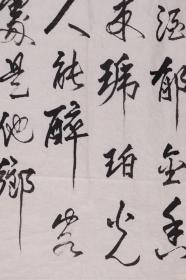 酒郁金香
来琥珀光
人能醉客
處是他鄉